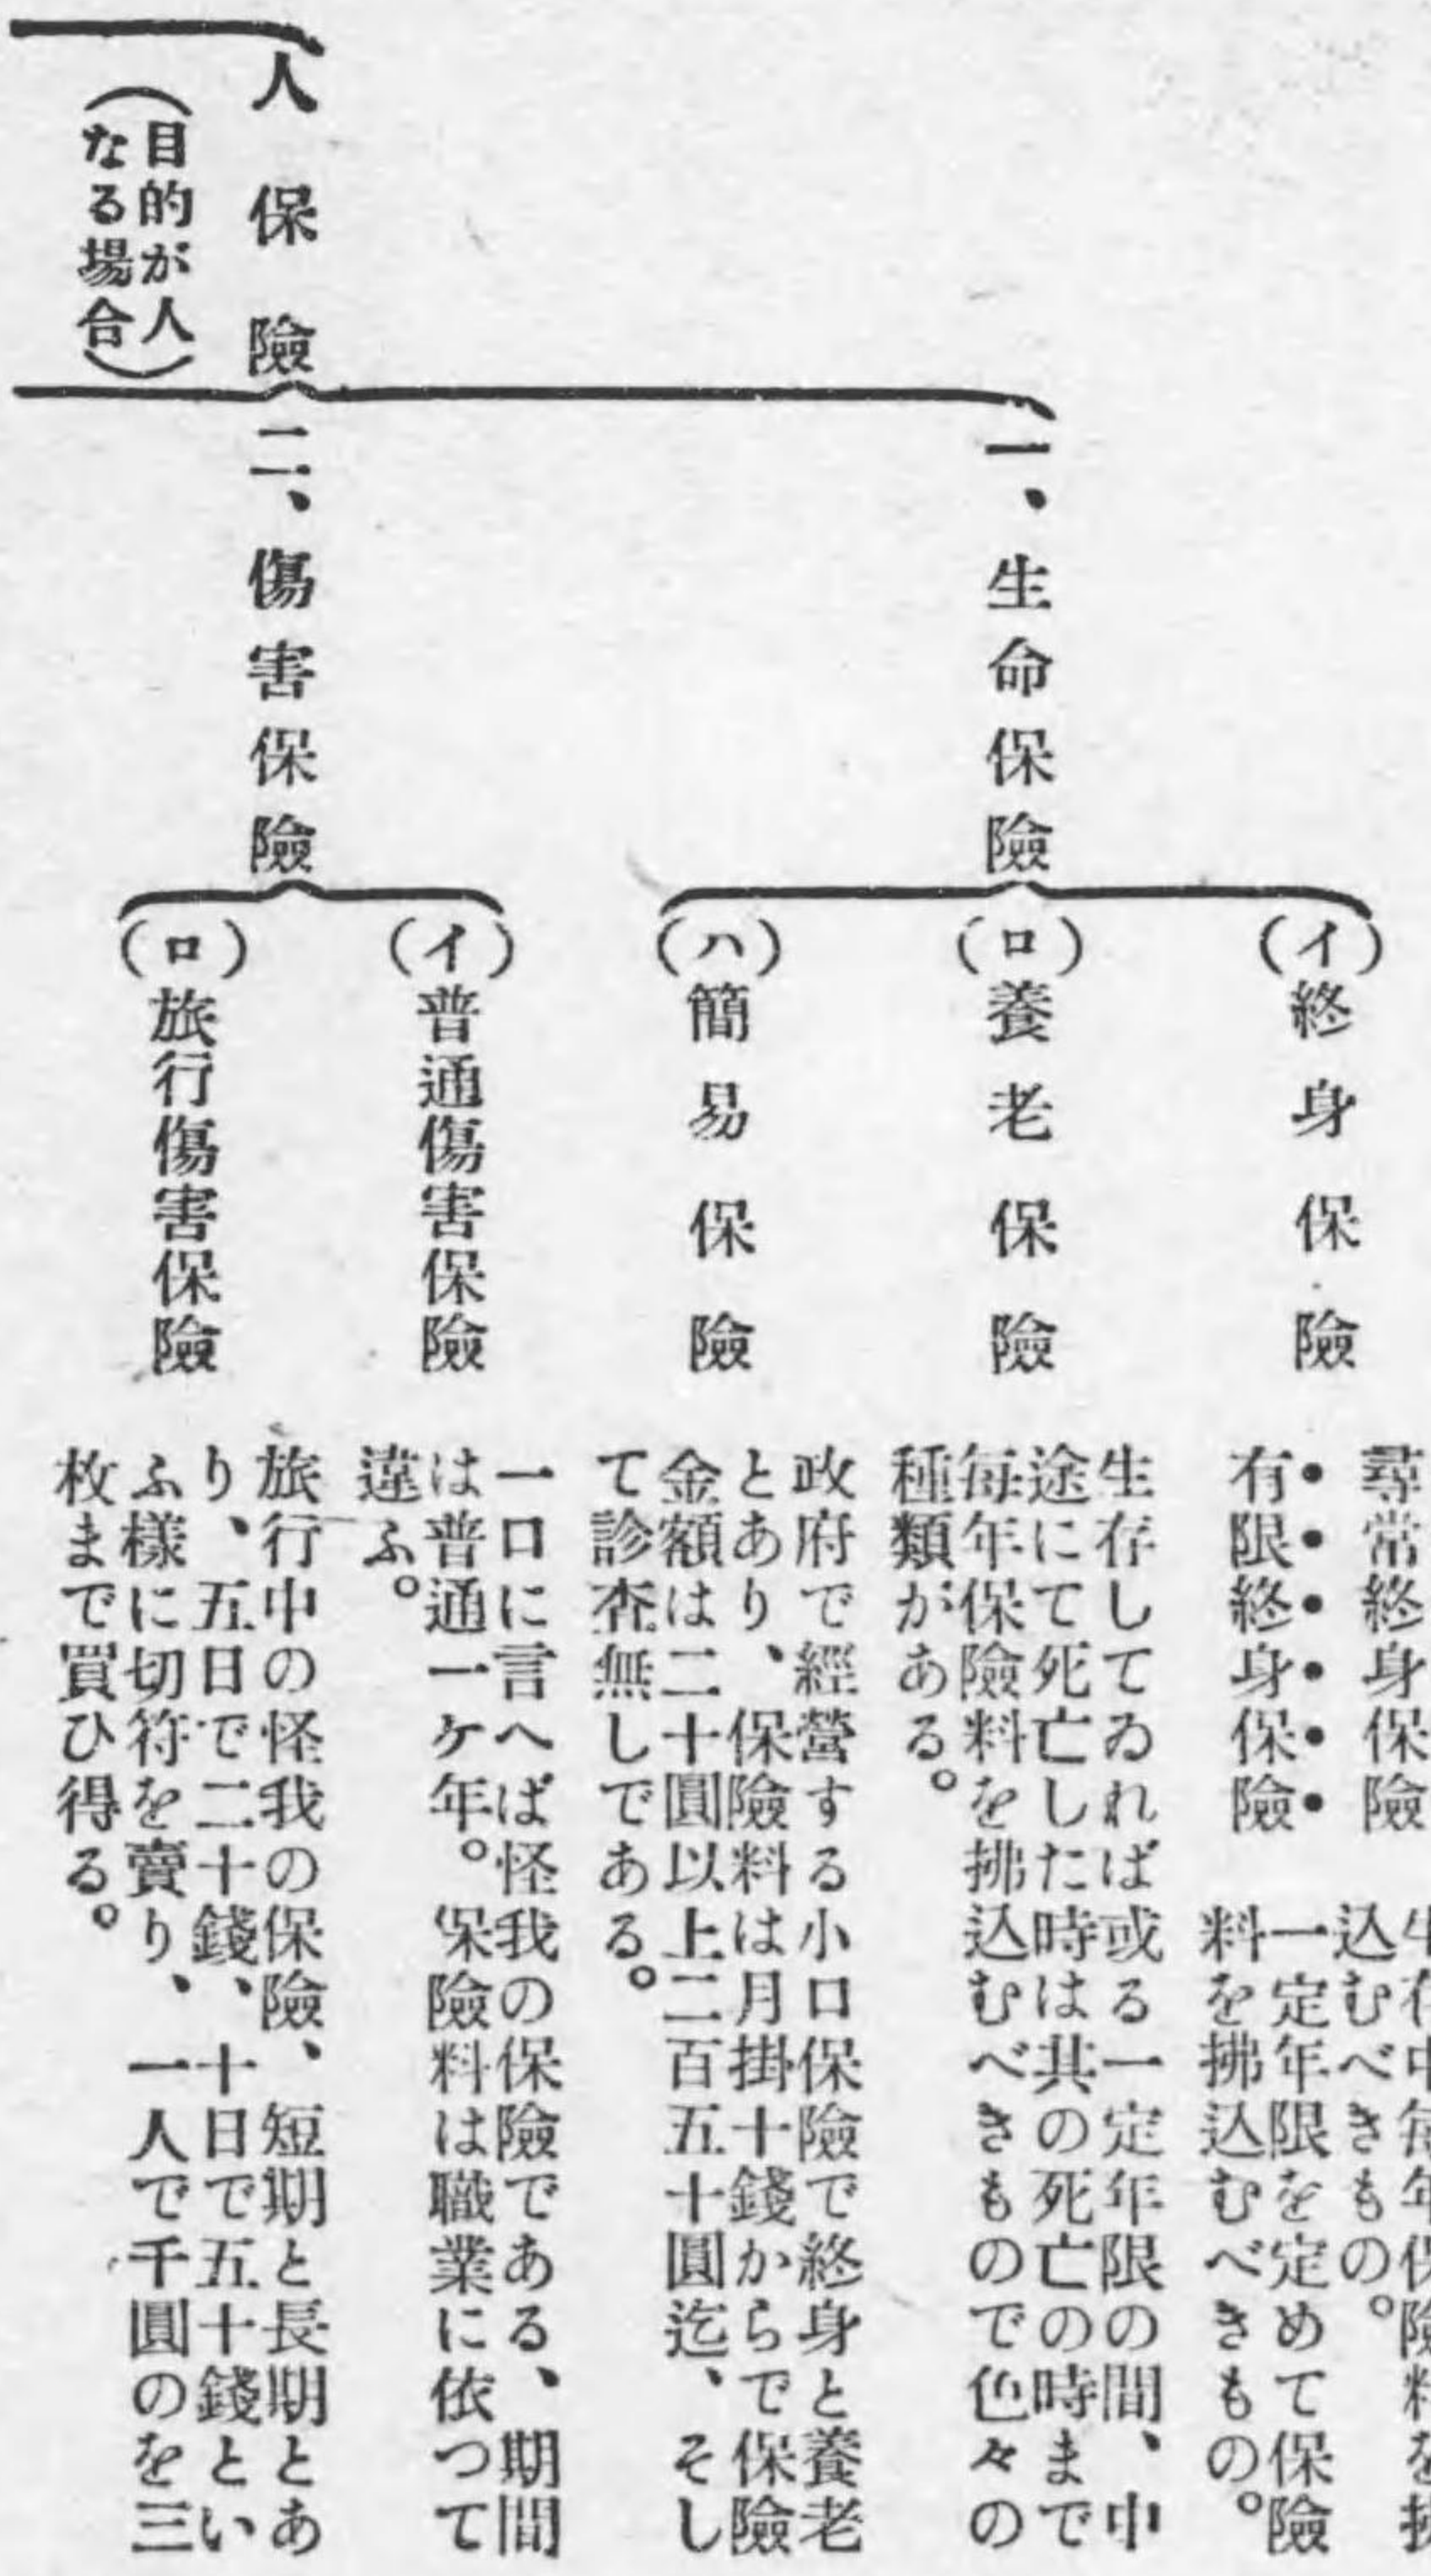 人保險
（目的が人
なる場合）
一、生命保險
（イ）終身保險
尋常終身保險
込むべきもの。
有限終身保險
一定年限を定めて保險
料を拂込むべきもの。
（ロ）養老保險
生存してゐれば或る一定年限の間、中
途にて死亡した時は其の死亡の時まで
每年保險料を拂込むべきもので色々の
種類がある。
（ハ）簡易保險
政府で經營する小口保險で終身と養老
とあり、保險料は月掛十錢からで保險
金額は二十圓以上二百五十圓迄、そし
て診査無しである。
二、傷害保險
（イ）普通傷害保險
一口に言へば怪我の保險である、期間
は普通一ケ年。保險料は職業に依つて
違ふ。
（ロ）旅行傷害保險
旅行中の怪我の保險、短期と長期とあ
り、五日で二十錢、十日で五十錢とい
ふ樣に切符を賣り、一人で千圓のを三
枚まで買ひ得る。